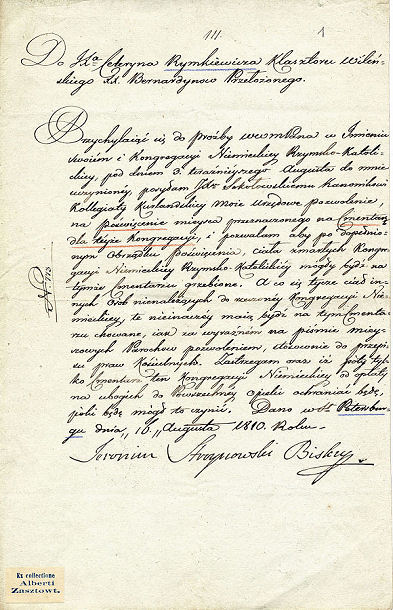 111.
1
Do JXa Seteryna Rymkiewicza Klasztoru Wileń-
skiego XX. Bernardynow Przełożonego.
Przychylaiąć się do proźby wwmPana w Imieniu
swoiem i Kongregacyi Niemieckiey Rzymsko-Katoli-
ckiey, pod dniem 3. teraźnieyszego Augusta do mnie
uczynioney, posyłam Jdzi Sokołowskiemu Kanonikowi
Kollegiaty Kurlandzkiey Moie Urzędowe pozwolenie,
na poświęcenie mieysca przeznaczonego na Cmentarz
dla teyże Kongregacyi, i pozwalam aby po dopełnio-
nym Obrządku Poświęcenia, ciała zmarłych Kongre-
gacyi Niemieckiey Rzymsko-Katolickiey mogły bydź na
tymże cmentarzu grzebione. A co się tycze ciał in-
nych Osob nienależących do rzeczoney Kongregacyi Nie-
mieckiey, te nieinaczey maią bydź na tym cmenta-
rzu chowane, iak za wyraźnem na piśmie miey-
scowych Parochow pozwoleniem, stosownie do przepi-
su praw Kościelnych. Zastrzegam oraz iż poty tyl-
ko cmentarz ten Kongregacyi Niemieckiey od opłaty
na ubogich do Powszechney opieki ochraniać będę,
poki będę mógł to czynić. Dano w St. Petersbur-
gu dnia „10„ Augusta 1810. Roku
Jeronim Stroynowski Biskup
Ex collectione
Alberti
Zasztowt.